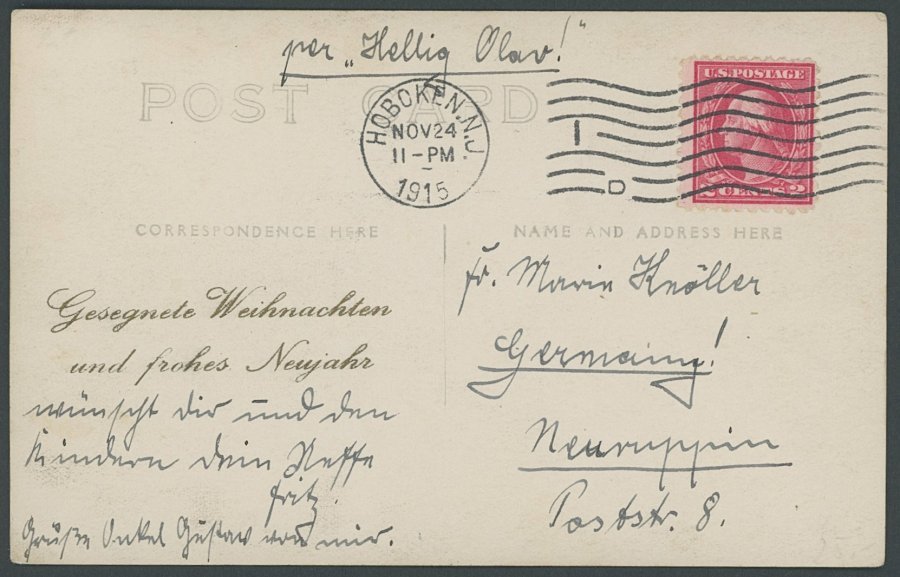 per „Hellig Olav!"
POST CARD
HOBOKEN, N.J.
NOV 24
11-PM
1915
1
D
U.S. POSTAGE
2 CENTS 2
CORRESPONDENCE HERE
NAME AND ADDRESS HERE
Gesegnete Weihnachten
und frohes Neujahr
wünscht dir und den
Kindern dein Neffe
Fritz.
Grüße Onkel Gustav von mir.
Fr. Marie Knöller
Germany!
Neuruppin
Poststr. 8.